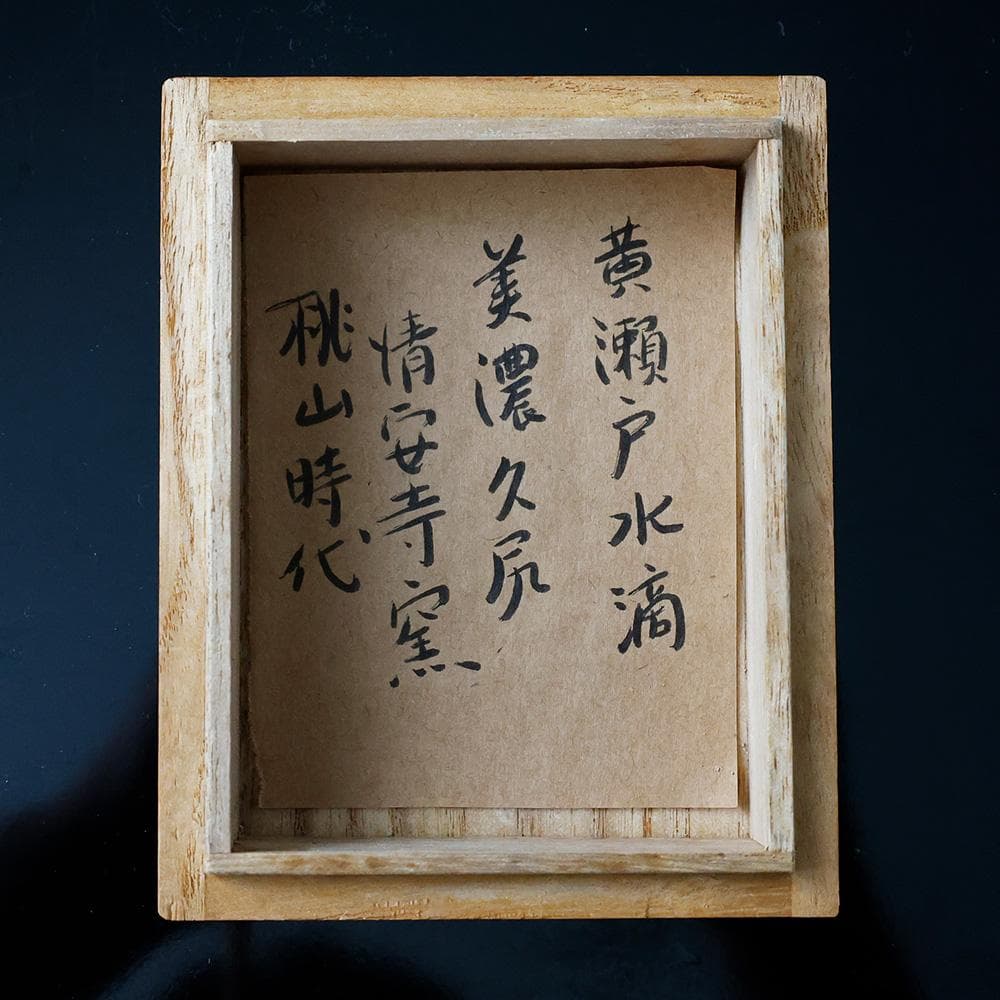 黄瀬戸水滴
美濃久尻
情安寺窯
桃山時代